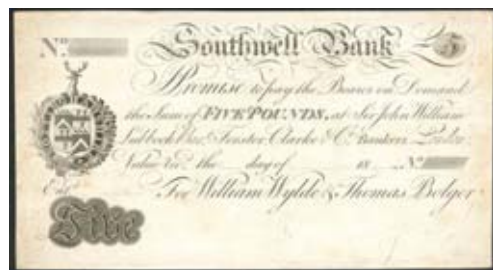 No. Southwell Bank £5
I Promise to pay the Bearer on Demand
the Sum of FIVE POUNDS, at Sir John William
Lubbock Bart. Forster Clarke & Co. Bankers London
Value recd. the day of 18 No.
For William Wylde & Thomas Bolger
Entd.
Five